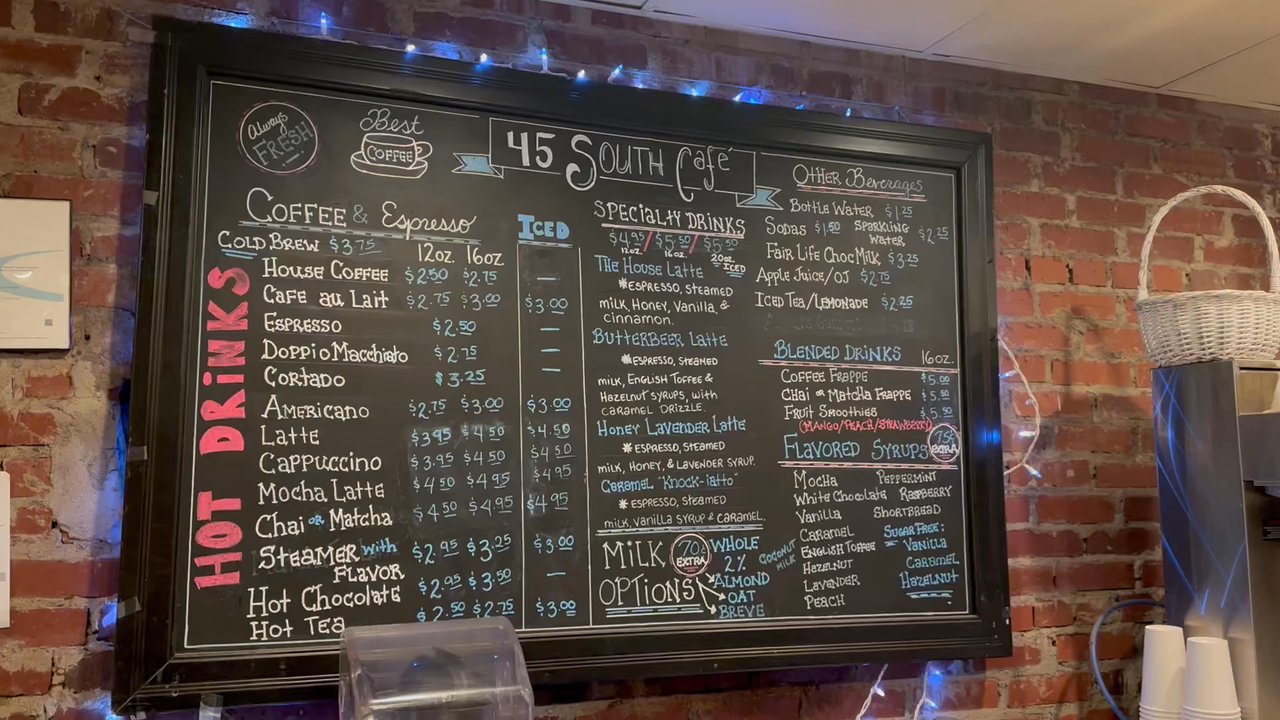 Always
FRESH
Best
COFFEE
45 South Café
Coffee & Espresso
Iced
Cold Brew $3.75
12oz. 16oz.
HOT DRINKS
House Coffee $2.50 $2.75 —
Cafe au Lait $2.75 $3.00 $3.00
Espresso $2.50 —
Doppio Macchiato $2.75 —
Cortado $3.25 —
Americano $2.75 $3.00 $3.00
Latte $3.95 $4.50 $4.50
Cappuccino $3.95 $4.50 $4.50
Mocha Latte $4.50 $4.95 $4.95
Chai or Matcha $4.50 $4.95 $4.95
Steamer with Flavor $2.95 $3.25 $3.00
Hot Chocolate $2.95 $3.50 —
Hot Tea $2.50 $2.75 $3.00
Specialty Drinks
$4.95 / $5.50 / $5.50
12oz. 16oz. 20oz. Iced
The House Latte
*Espresso, Steamed
milk, Honey, Vanilla, &
cinnamon.
Butterbeer Latte
*Espresso, Steamed
milk, English Toffee &
Hazelnut Syrups, with
caramel drizzle.
Honey Lavender Latte
*Espresso, Steamed
milk, Honey, & Lavender Syrup.
Caramel "Knock-iatto"
*Espresso, Steamed
milk, vanilla syrup & caramel
Milk Options
70¢ EXTRA
WHOLE
2%
ALMOND
OAT
BREVE
COCONUT MILK
Other Beverages
Bottle Water $1.25
Sodas $1.50 Sparkling Water $2.25
Fair Life Choc Milk $3.25
Apple Juice/OJ $2.75
Iced Tea/Lemonade $2.25
Blended Drinks 16oz.
Coffee Frappe $5.00
Chai or Matcha Frappe $5.50
Fruit Smoothies $5.50
(Mango/Peach/Strawberry)
Flavored Syrups
75¢ EXTRA
Mocha
White Chocolate
Vanilla
Caramel
English Toffee
Hazelnut
Lavender
Peach
Peppermint
Raspberry
Shortbread
Sugar Free:
Vanilla
Caramel
Hazelnut